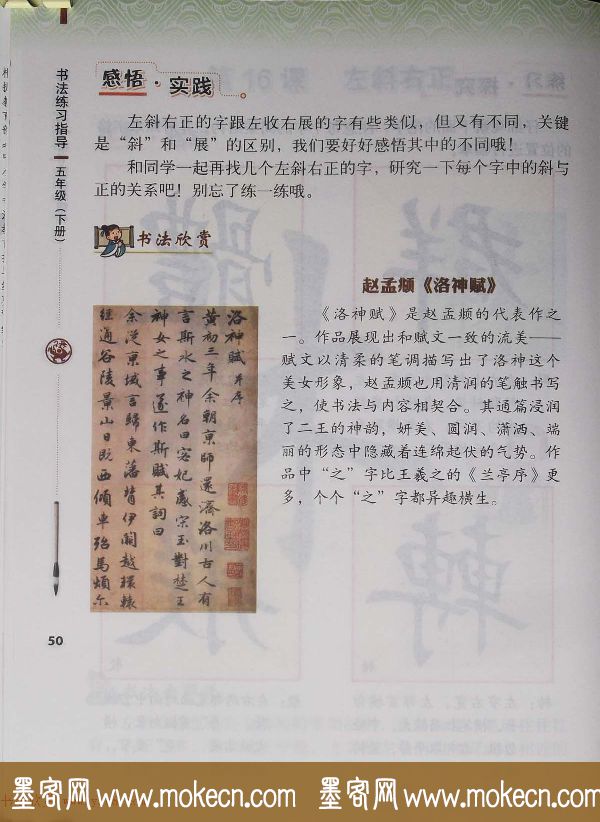 感悟·实践
左斜右正的字跟左收右展的字有些类似，但又有不同，关键
是“斜”和“展”的区别，我们要好好感悟其中的不同哦！
和同学一起再找几个左斜右正的字，研究一下每个字中的斜与
正的关系吧！别忘了练一练哦。
书法欣赏
赵孟頫《洛神赋》
《洛神赋》是赵孟頫的代表作之
一。作品展现出和赋文一致的流美——
赋文以清柔的笔调描写出了洛神这个
美女形象，赵孟頫也用清润的笔触书写
之，使书法与内容相契合。其通篇浸润
了二王的神韵，妍美、圆润、潇洒、端
丽的形态中隐藏着连绵起伏的气势。作
品中“之”字比王羲之的《兰亭序》更
多，个个“之”字都异趣横生。
洛神賦 并序
黄初三年余朝京師還濟洛川古人有
言斯水之神名曰宓妃感宋玉對楚王
神女之事遂作斯賦其詞曰
余從京域言歸東藩背伊闕越轘轅
經通谷陵景山日既西傾車殆馬煩尔
书法练习指导
五年级（下册）
50
墨客网 www.mokecn.com 墨客网 www.mokecn.com